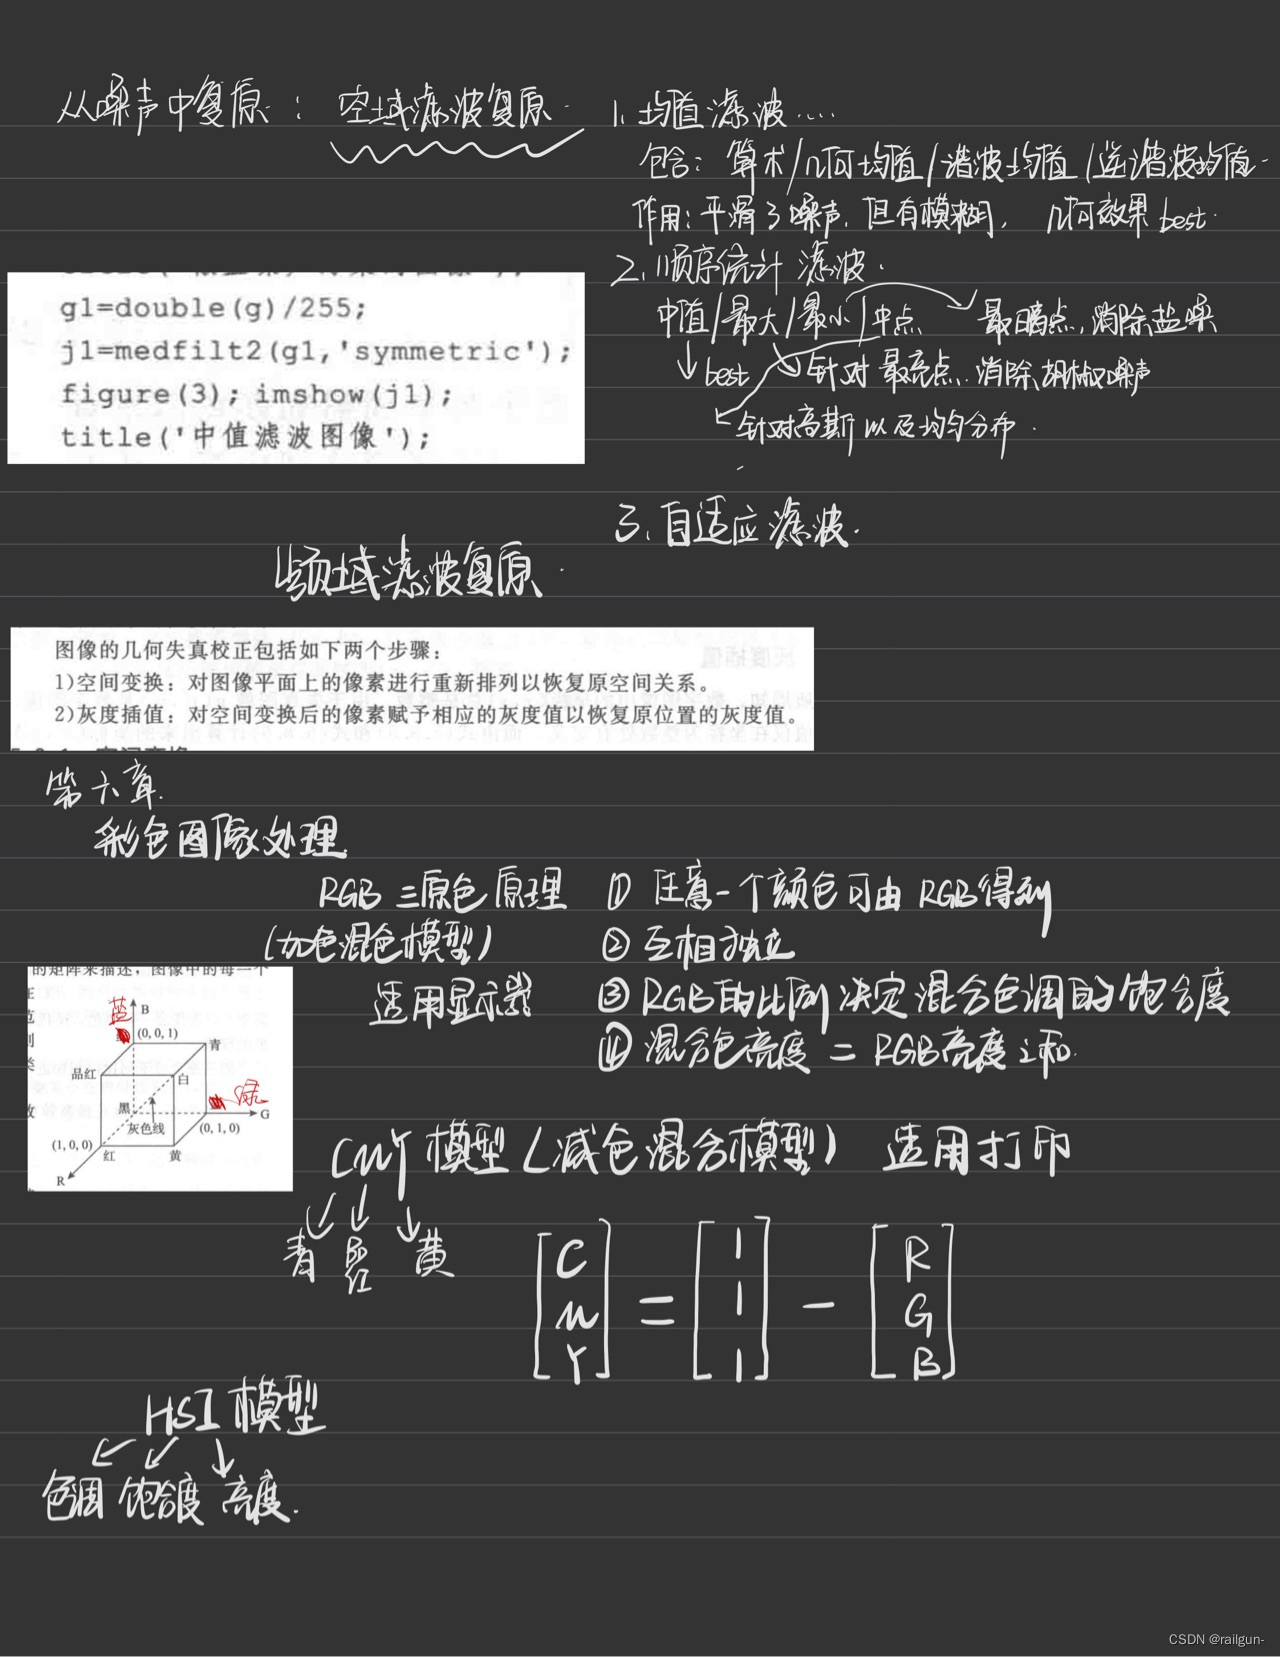 从噪声中复原： 空域滤波复原.
1. 均值滤波....
包含：算术/几何均值/谐波均值/逆谐波均值.
作用：平滑了噪声，但有模糊，几何效果best.
2. 顺序统计滤波.
中值/最大/最小/中点 最暗点，消除盐噪
best 针对最亮点.消除胡椒噪声
针对高斯以及均匀分布.
3. 自适应滤波.
g1=double(g)/255;
j1=medfilt2(g1,'symmetric');
figure(3); imshow(j1);
title('中值滤波图像');
频域滤波复原.
图像的几何失真校正包括如下两个步骤：
1)空间变换：对图像平面上的像素进行重新排列以恢复原空间关系。
2)灰度插值：对空间变换后的像素赋予相应的灰度值以恢复原位置的灰度值。
第六章.
彩色图像处理.
RGB三原色原理 ① 任意一个颜色可由RGB得到
(加色混色模型) ② 互相独立
适用显示器 ③ RGB的比例决定混合色调的饱合度
④ 混合色亮度 = RGB亮度之和.
的矩阵来描述，图像中的每一个
蓝 B
(0, 0, 1)
青
品红
白
绿
黑
G
灰色线
(0, 1, 0)
(1, 0, 0)
红 黄
R
CMY模型(减色混合模型) 适用打印
青 品红 黄
[C M Y] = [1 1 1] - [R G B]
HSI模型
色调 饱合度 亮度.
CSDN @railgun-